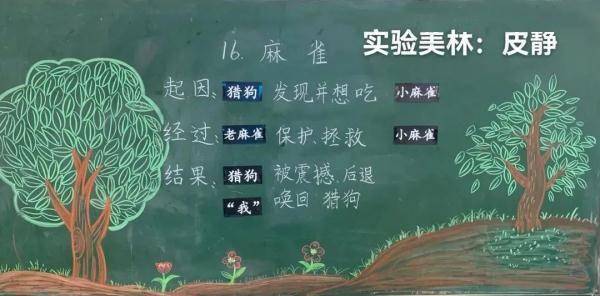 16. 麻雀
实验美林：皮静
起因：猎狗 发现并想吃 小麻雀
经过：老麻雀 保护、拯救 小麻雀
结果：猎狗 被震撼、后退
“我” 唤回 猎狗